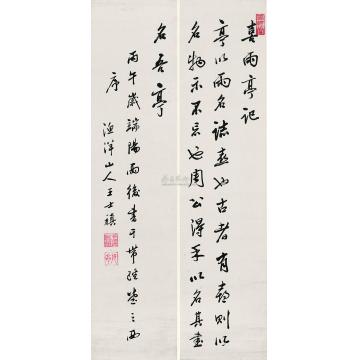 喜雨亭記
亭以雨名誌喜也古者有喜則以
名物示不忘也周公得禾以名其書
名吾亭
丙午歲端陽雨後書于帶經堂之西
序
漁洋山人王士禛